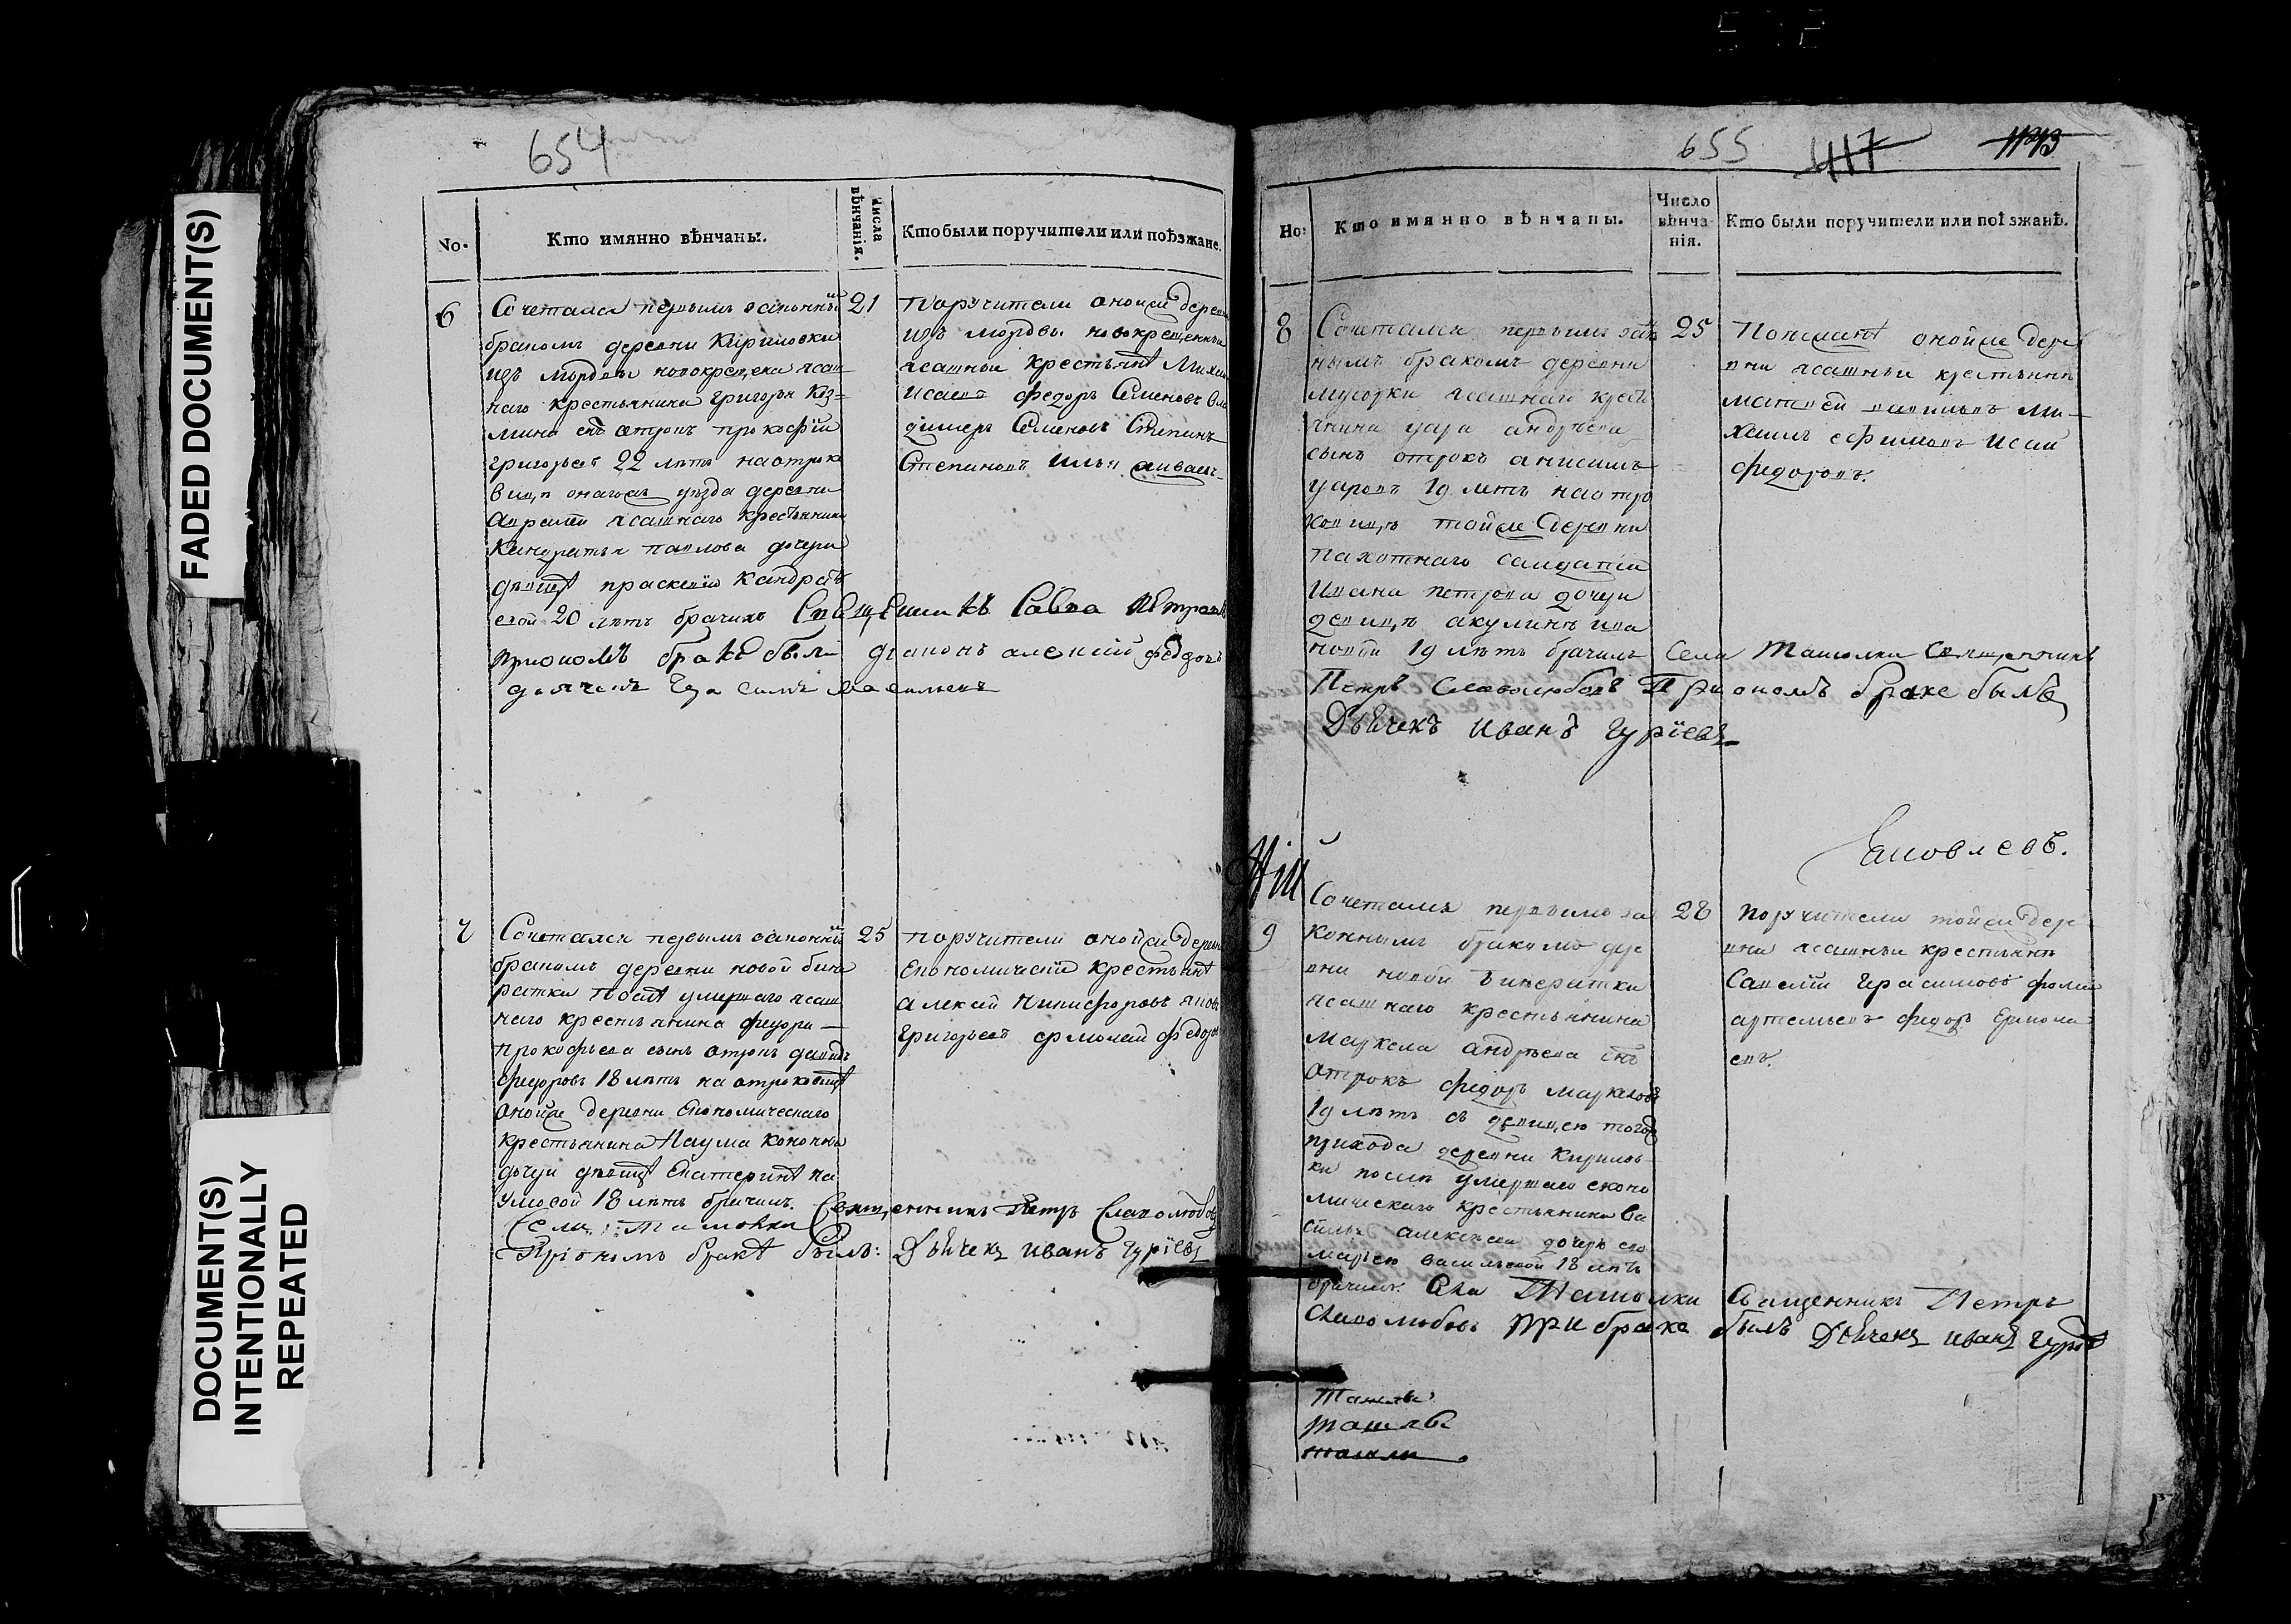 FADED DOCUMENT(S)
DOCUMENT(S)
INTENTIONALLY
REPEATED
654
No.
Кто имянно вѣнчаны.
Числа вѣнчанія.
Кто были поручители или поѣзжане.
6
Сочетался первымъ законны
бракомъ деревни Кириловки
изъ мордвы новокрещена ясаш
наго крестьянина Григорья Коз=
мина снъ отрокъ прокофїй
григорьевъ 22 лѣтъ на отроко
вицѣ онагоже уѣзда деревни
ясашнаго крестьянина
Кандратья павлова дочери
дѣвицѣ прасковїи Кандрать
евой 20 лѣтъ брачилъ Священникъ Савва Петровъ
приономъ бракѣ были дїаконъ алексѣй федоровъ
дьячекъ Герасимъ Васильевъ
21
Поручители онойже дерев
изъ мордвы новокрещенныи
ясашныи крестьянѣ Миха
Исаевъ федоръ Семеновъ Вла
димеръ Семеновъ Степанъ
Степановъ Илья
7
Сочетался первымъ законны
бракомъ деревни новой бина
ратки послѣ умершаго ясаш
наго крестьянина федора
Прокофьева сынъ отрокъ давидъ
федоровъ 18 лѣтъ на отроковицѣ
онойже деревни Економическаго
крестьянина Наума
дочери дѣвицѣ Екатеринѣ На
умовой 18 лѣтъ брачилъ.
Села Ташолки Священникъ Петръ Славолюбовъ
Приономъ бракѣ былъ: Дьячекъ Иванъ Гурїевъ
25
поручители онойже деревн
Економическїи крестьянѣ
алексѣй Никифоровъ яковъ
Григорьевъ ермолай федоров
655
417
1173
Но:
Кто имянно вѣнчаны.
Число
вѣнча-
нія.
Кто были поручители или поѣзжанѣ.
8
Сочетался первымъ зако
ннымъ бракомъ деревни
мусорки ясашнаго кресть
янина уара андрѣева
сынъ отрокъ анисимъ
уаровъ 19 лѣтъ на отро
ковицѣ тойже деревни
пахотнаго салдата
Ивана петрова дочери
девицѣ акулинѣ ива
новой 19 лѣтъ брачилъ Села Ташолки Священникъ
Петръ Славолюбовъ Приономъ браке былъ
Дьячекъ Иванъ Гурїевъ
25
онойже дере
вни ясашныи крестьянѣ
матвей Ми-
хаилъ ефимовъ Исай
федоровъ.
Яковлевъ.
9
Сочетался первымъ за
коннымъ бракомъ дере
вни новой бинаратки
ясашнаго крестьянина
Маркела андрѣева снъ
отрокъ федоръ маркеловъ
19 лѣтъ съ девицею тогож
прихода деревни Кирилов
ки послѣ умершаго еконо
мическаго крестьянина Ва
силья алексѣева дочерь его
марьею васильевой 18 лѣтъ
брачилъ Села Ташолки Священникъ Петръ
Славолюбовъ при браке былъ Дьячекъ Иванъ Гурїев
28
поручители тойже дере
вни ясашныи крестьянѣ
Савелїй Герасимовъ фома
артемьевъ федоръ Ермола
евъ.